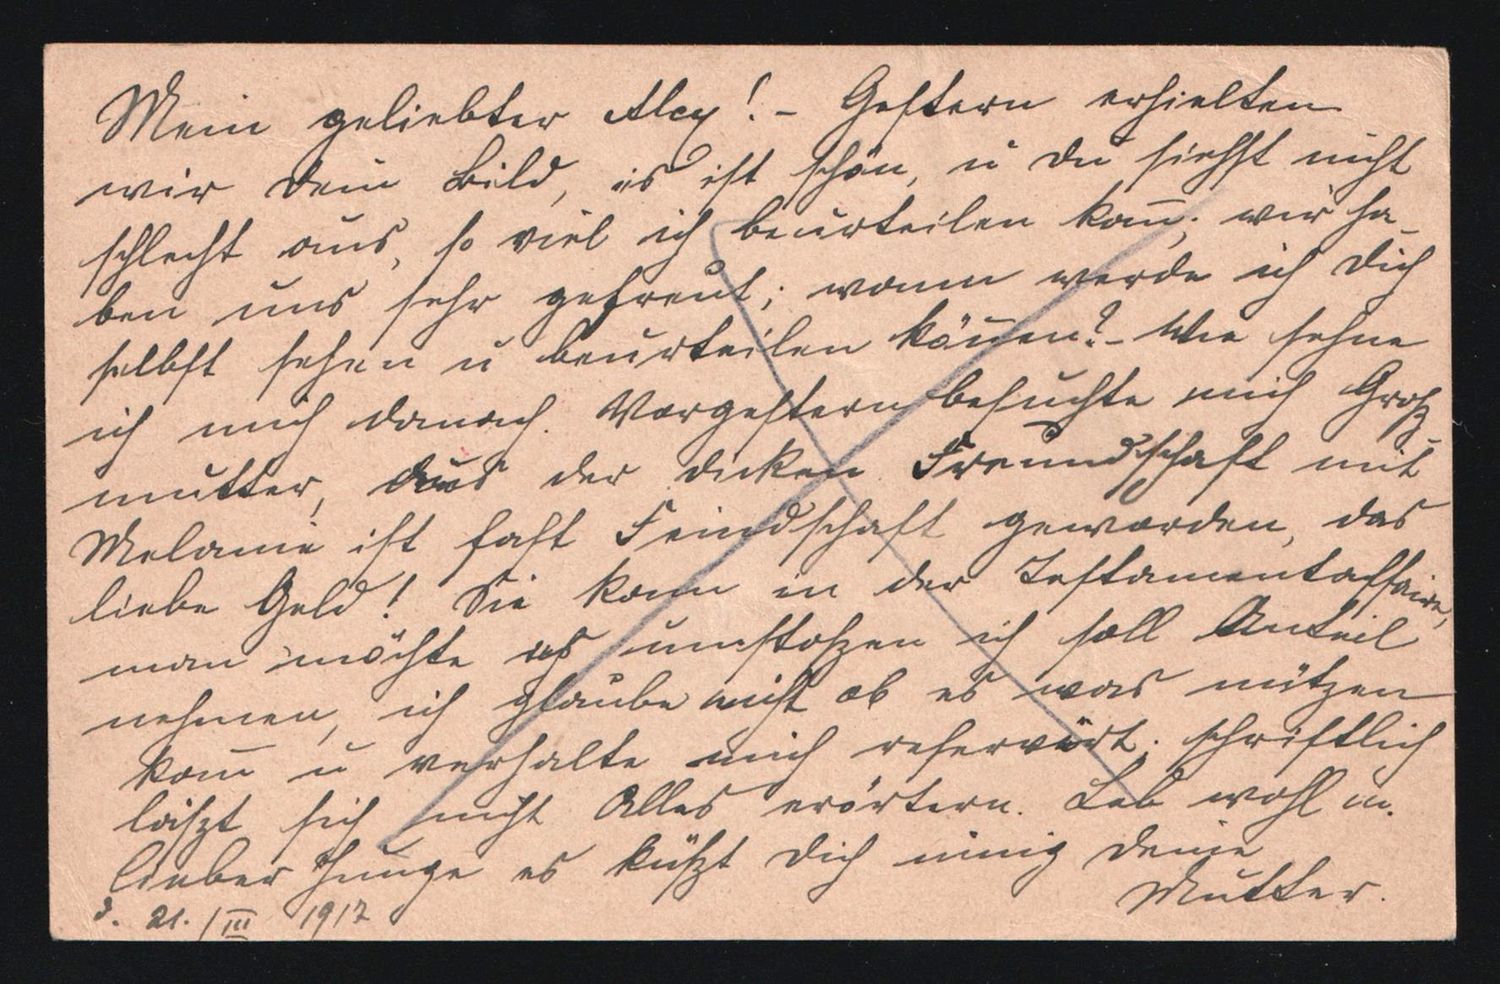 Mein geliebter Alex! – Gestern erhielten
wir dein Bild, es ist schön, u du siehst nicht
schlecht aus, so viel ich beurteilen kan̄; wir ha-
ben uns sehr gefreut; wann werde ich Dich
selbst sehen u beurteilen kön̄en? – Wie sehne
ich mich danach. Vorgestern besuchte mich Groß-
mutter, aus der dicken Freundschaft mit
Melanie ist fast Feindschaft geworden, das
liebe Geld! Sie kam in der Testamentaffaire,
man möchte es umstoßen ich soll Anteil
nehmen, ich glaube nicht ob es was nützen
kan̄ u verhalte mich reservirt; schriftlich
läßt sich nicht Alles erörtern. Leb wohl m.
lieber Junge es küßt Dich innig Deine
Mutter.
d. 21./III 1917